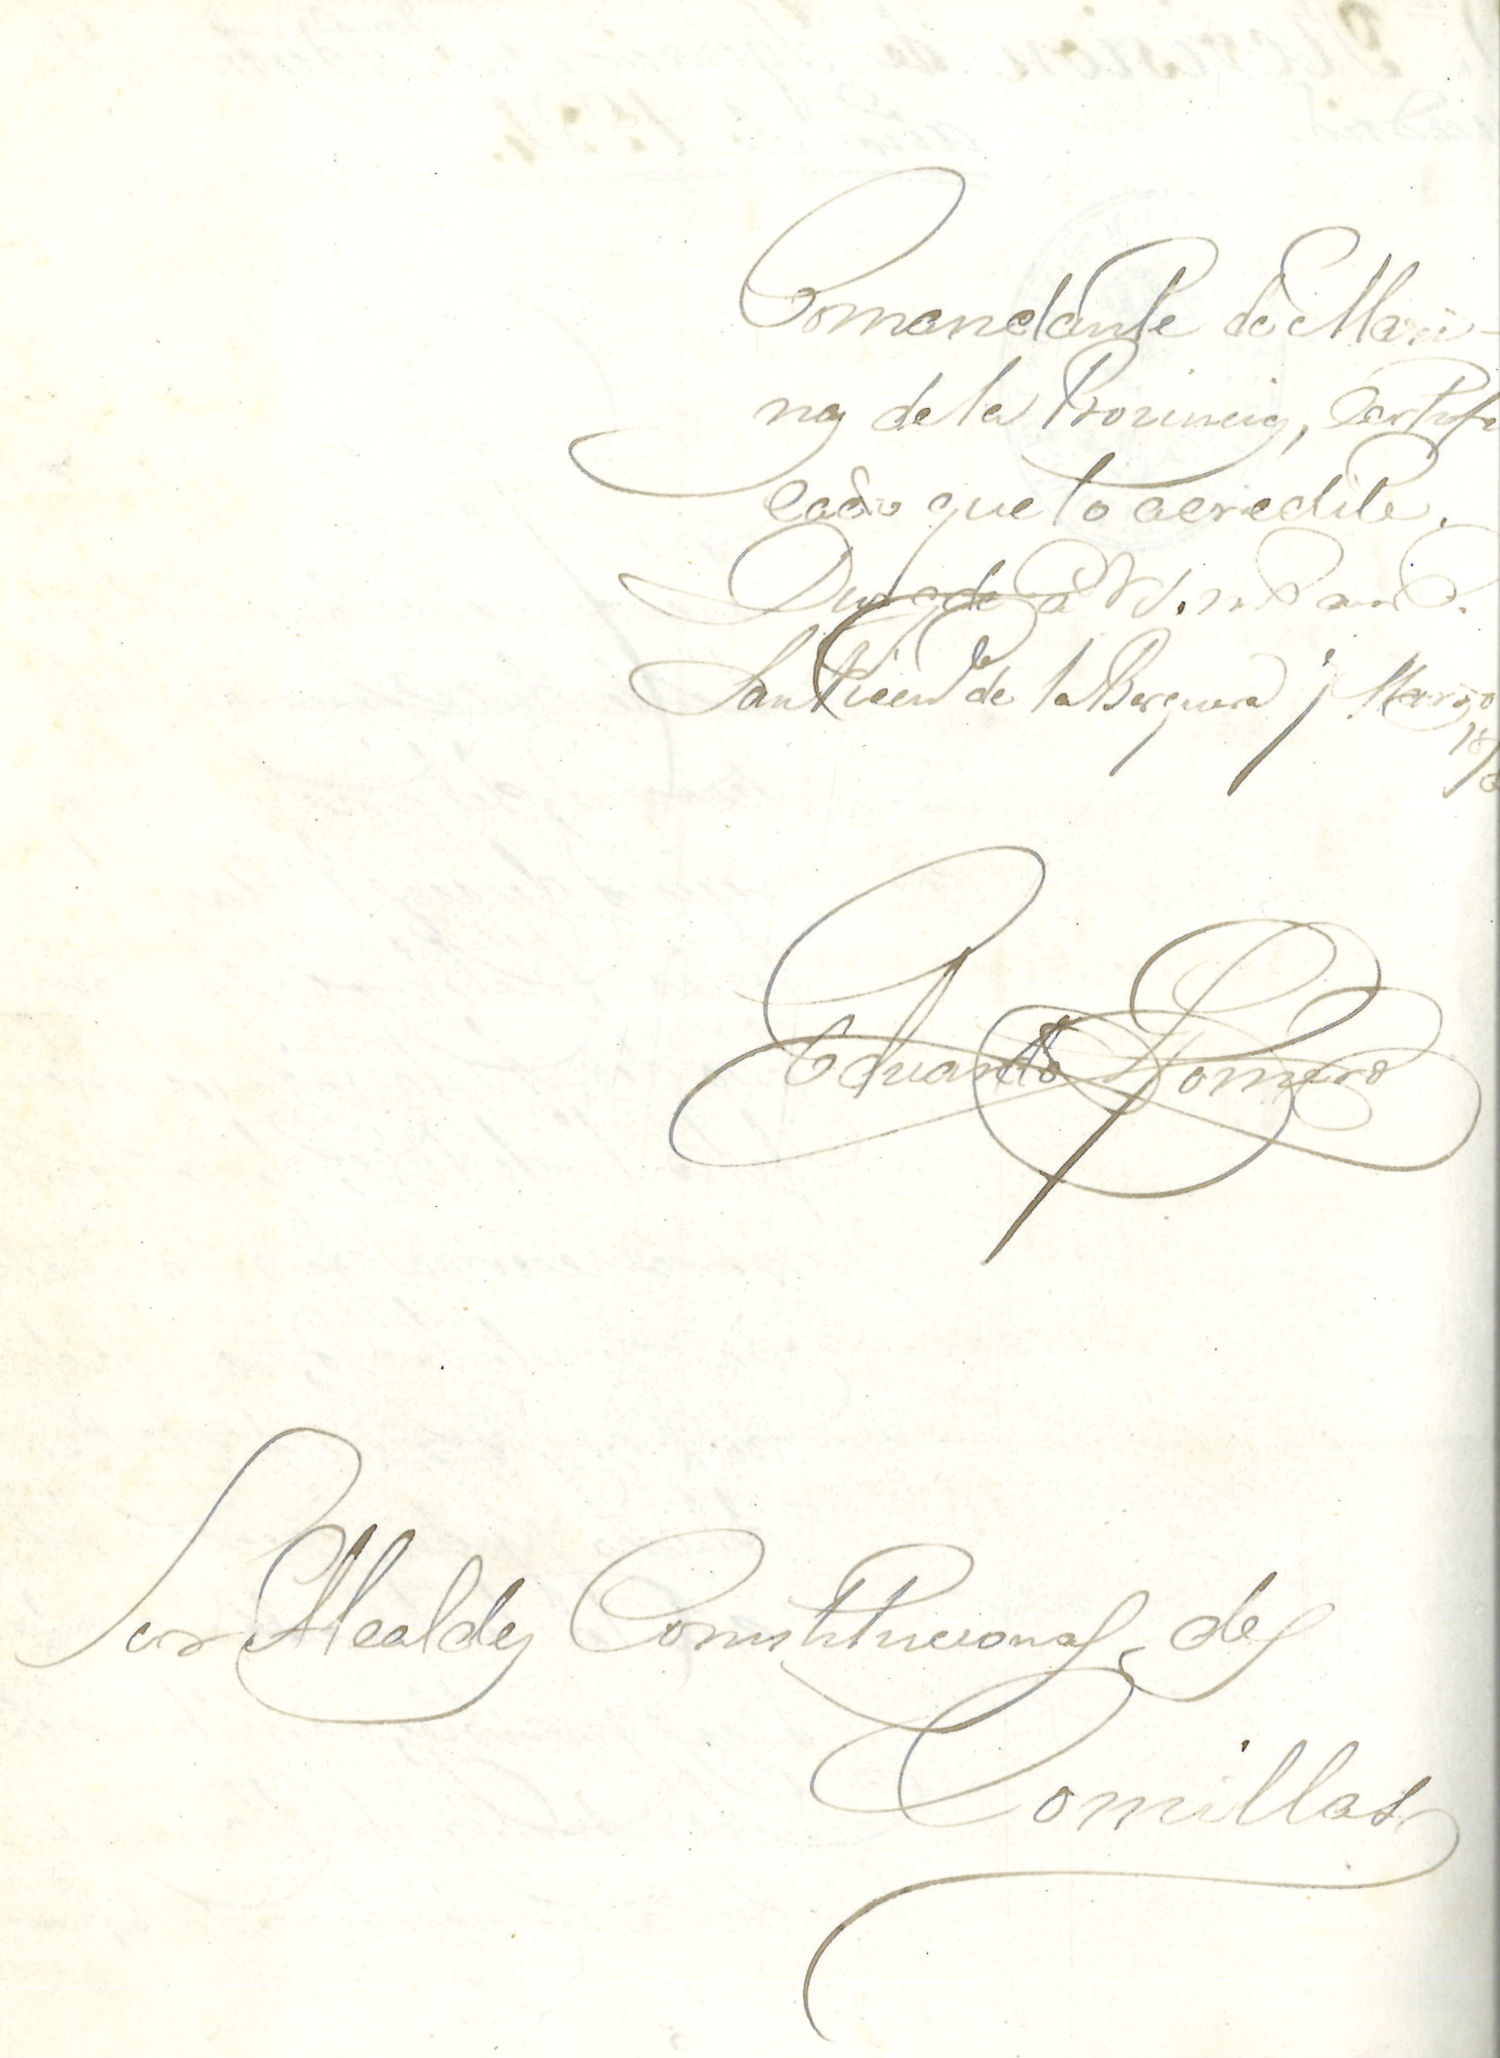 Comandante de Mari-
na de la Provincia, Certifi
cado que lo acredite.
Dios gde a Vd. m.s a.s
San Vicente de la Barquera Marzo
Eduardo Romero
Sor Alcalde Constitucional de
Comillas